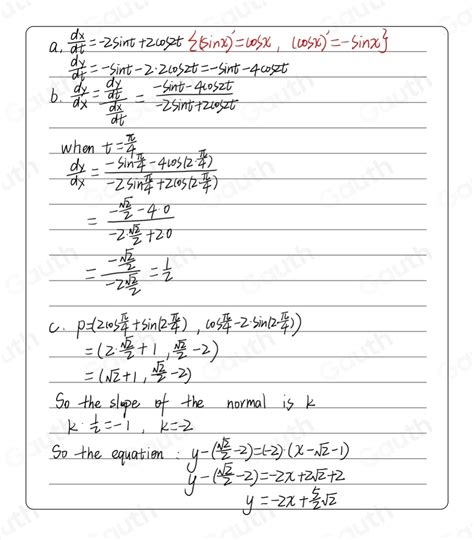 a, dx/dt = -2sint+2cos2t {(sinx)'=cosx, (cosx)'=-sinx}
dy/dt = -sint-2·2cos2t=-sint-4cos2t
b. dy/dx = (dy/dt)/(dx/dt) = (-sint-4cos2t)/(-2sint+2cos2t)
when t=π/4
dy/dx = (-sin π/4 -4cos(2·π/4))/(-2sin π/4 +2cos(2·π/4))
= (-√2/2 -4·0)/(-2·√2/2 +2·0)
= (-√2/2)/(-2√2/2) = 1/2
c. P=(2cos π/4 +sin(2·π/4), cos π/4 -2·sin(2·π/4))
=(2·√2/2 +1, √2/2 -2)
=(√2+1, √2/2 -2)
So the slope of the normal is k
k·1/2=-1, k=-2
So the equation: y-(√2/2 -2)=(-2)·(x-√2-1)
y-(√2/2 -2)=-2x+2√2+2
y=-2x+5/2√2
Gauth